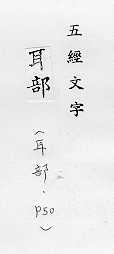 五經文字
耳部
(耳部·P50)